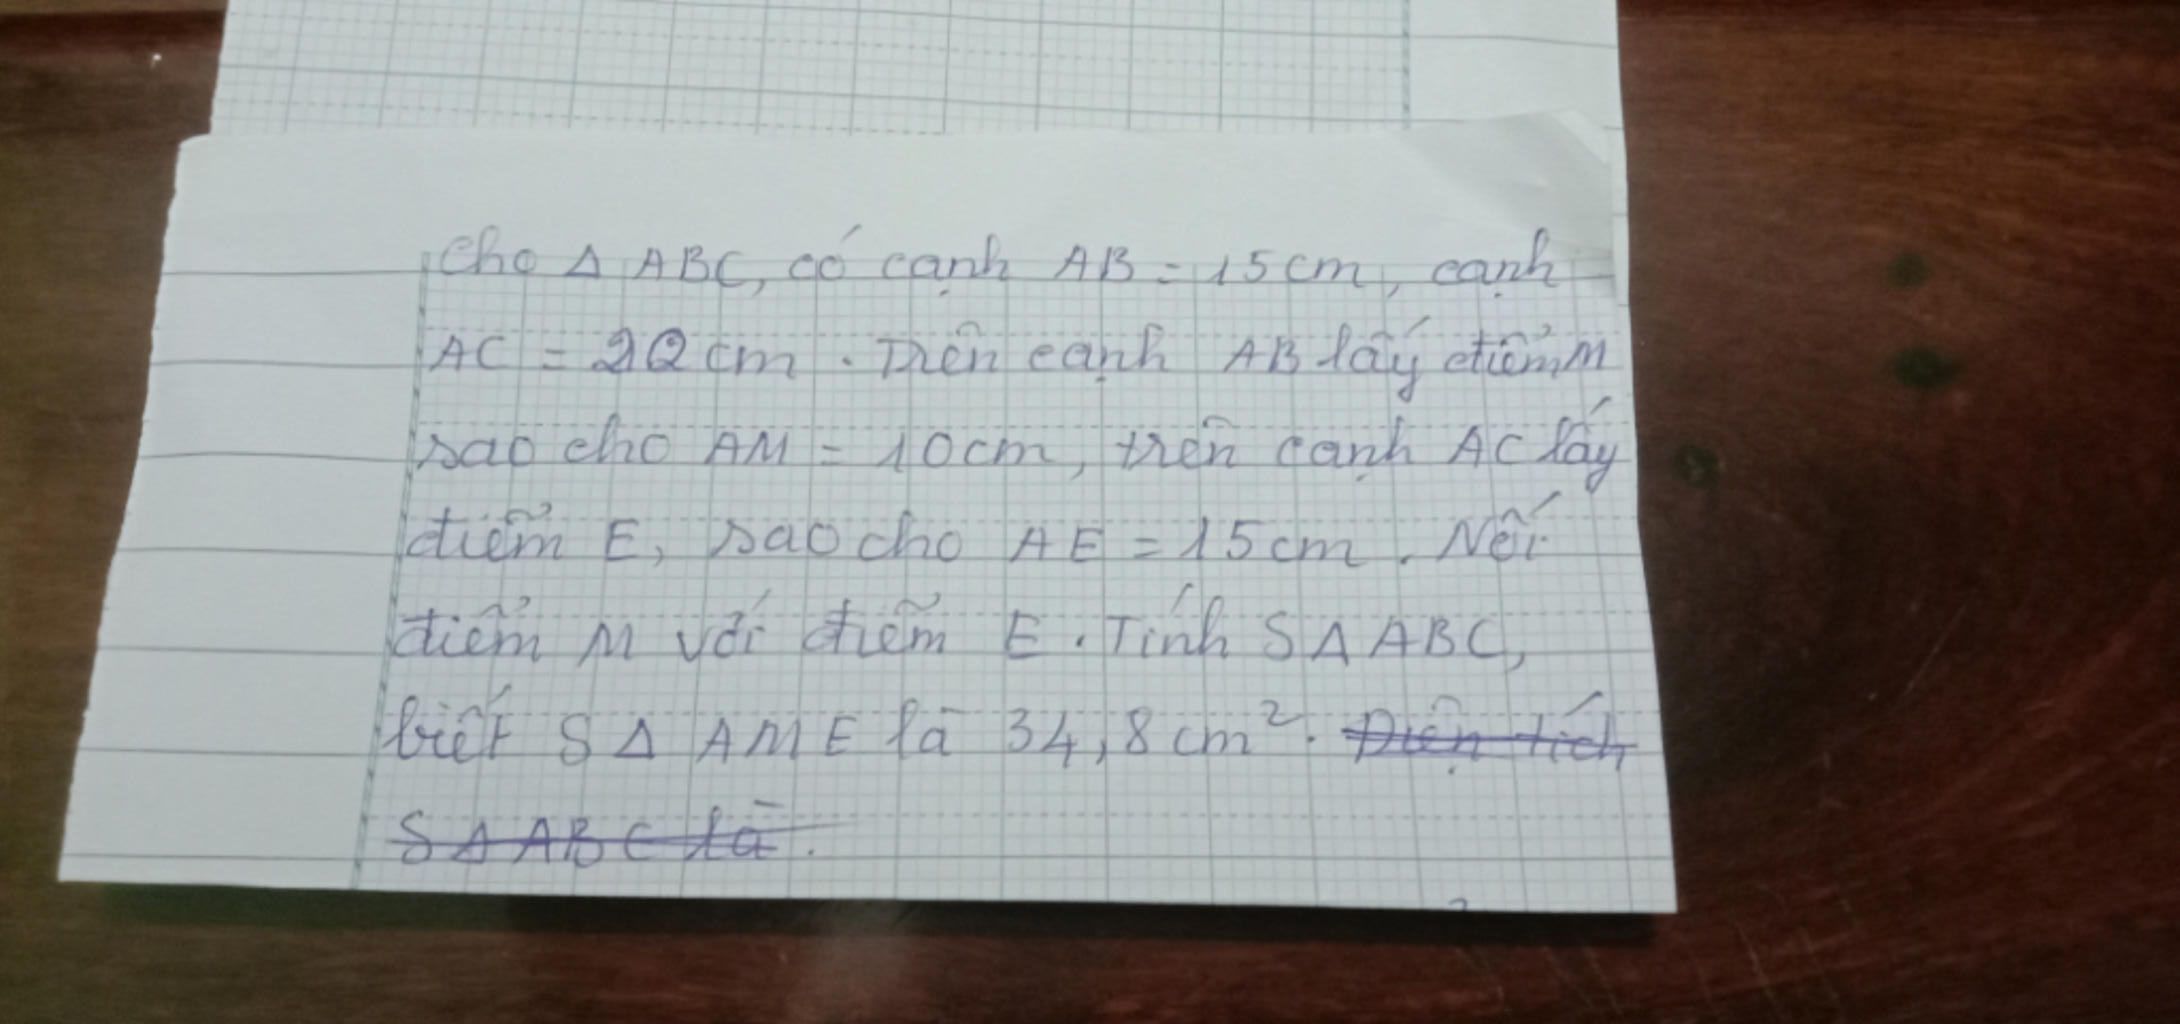 Cho Δ ABC, có cạnh AB = 15 cm, cạnh
AC = 20 cm. Trên cạnh AB lấy điểm M
sao cho AM = 10cm, trên cạnh AC lấy
điểm E, sao cho AE = 15cm. Nối
điểm M với điểm E. Tính SΔABC,
biết SΔ AME là 34,8 cm². Diện tích
SΔABC là.